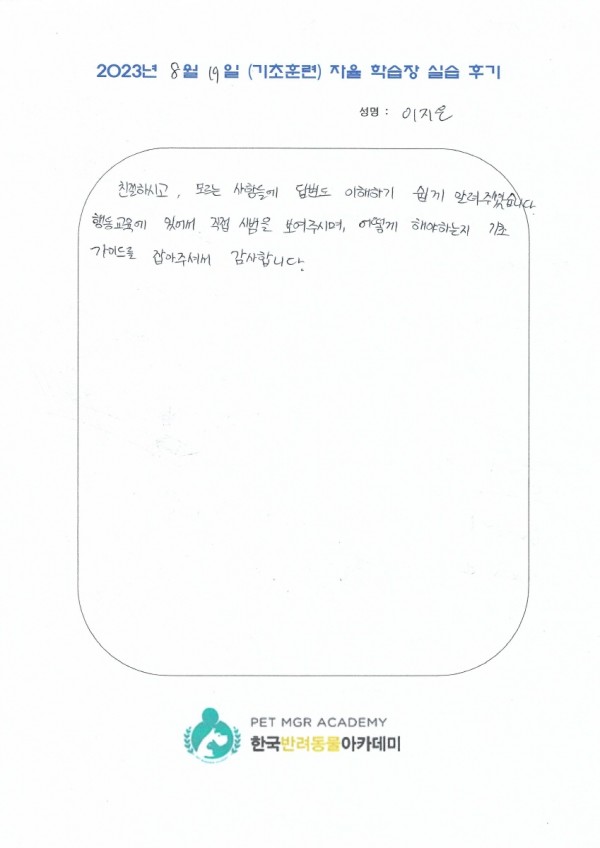 2023년 8월 19일 (기초훈련) 자율 학습장 실습 후기
성명 : 이지은
친절하시고, 모르는 사항들에 답변도 이해하기 쉽게 알려주셨습니다.
행동교육에 있어서 직접 시범을 보여주시며, 어떻게 해야하는지 기초
가이드를 잡아주셔서 감사합니다.
PET MGR ACADEMY
한국반려동물아카데미